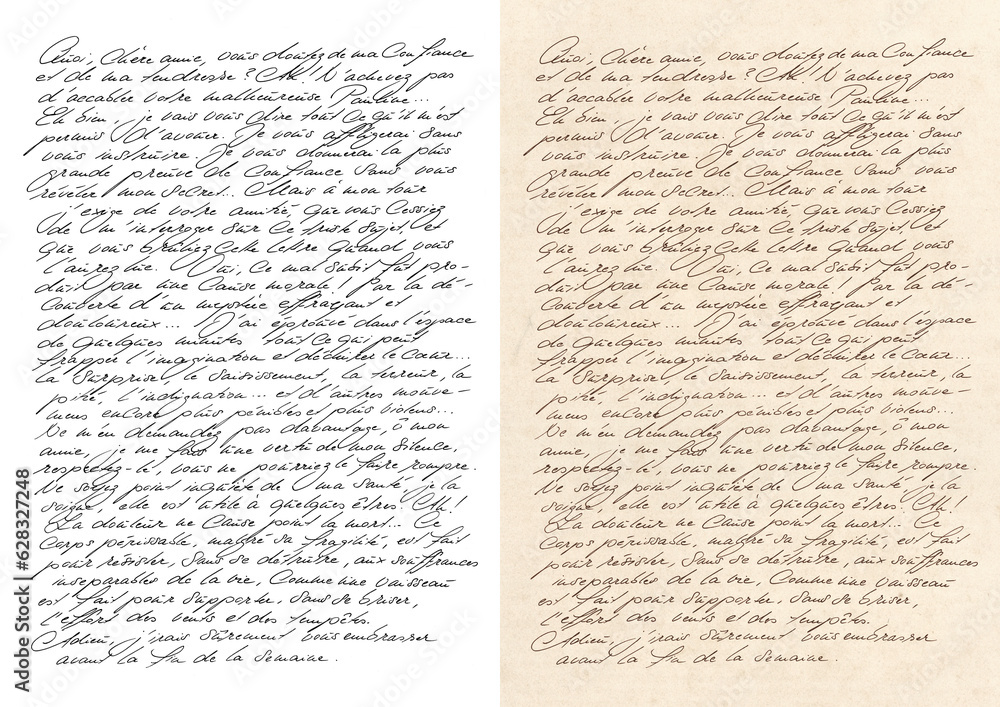 Quoi, Chère amie, vous doutez de ma Confiance
et de ma tendresse ? Ah ! N'achevez pas
d'accabler votre malheureuse Pauline...
Eh bien, je vais vous dire tout Ce qu'il m'est
permis d'avouer. Je vous affligerai sans
vous instruire. Je vous donnerai la plus
grande preuve de Confiance Sans vous
révéler mon Secret... Mais à mon tour
j'exige de votre amitié, que vous Cessiez
de m'interroger sur Ce triste Sujet, et
que vous brûliez Cette lettre quand vous
l'aurez lue. Oui, Ce mal Subit fut pro-
duit par une Cause morale ! Par la dé-
Couverte d'un mystère effrayant et
douloureux... J'ai éprouvé dans l'espace
de quelques minutes tout Ce qui peut
frapper l'imagination et déchirer le Cœur...
La Surprise, le Saisissement, la terreur, la
pitié, l'indignation... et d'autres mouve-
mens encore plus pénibles et plus violens...
Ne m'en demandez pas davantage, ô mon
amie, je me fais une vertu de mon Silence,
respectez-le, vous ne pourriez le faire rompre.
Ne soyez point inquiète de ma Santé je la
soigne, elle est utile à quelques êtres. Ah !
La douleur ne Cause point la mort... Ce
Corps périssable, malgré sa fragilité, est fait
pour résister, Sans se détruire, aux souffrances
inséparables de la vie, Comme une vaisseau
est fait pour Supporter, Sans Se briser,
l'effort des vents et des tempêtes.
Adieu, j'irais Sûrement vous embrasser
avant la fin de la Semaine.
Quoi, Chère amie, vous doutez de ma Confiance
et de ma tendresse ? Ah ! N'achevez pas
d'accabler votre malheureuse Pauline...
Eh bien, je vais vous dire tout Ce qu'il m'est
permis d'avouer. Je vous affligerai sans
vous instruire. Je vous donnerai la plus
grande preuve de Confiance Sans vous
révéler mon Secret... Mais à mon tour
j'exige de votre amitié, que vous Cessiez
de m'interroger sur Ce triste Sujet, et
que vous brûliez Cette lettre quand vous
l'aurez lue. Oui, Ce mal Subit fut pro-
duit par une Cause morale ! Par la dé-
Couverte d'un mystère effrayant et
douloureux... J'ai éprouvé dans l'espace
de quelques minutes tout Ce qui peut
frapper l'imagination et déchirer le Cœur...
La Surprise, le Saisissement, la terreur, la
pitié, l'indignation... et d'autres mouve-
mens encore plus pénibles et plus violens...
Ne m'en demandez pas davantage, ô mon
amie, je me fais une vertu de mon Silence,
respectez-le, vous ne pourriez le faire rompre.
Ne soyez point inquiète de ma Santé je la
soigne, elle est utile à quelques êtres. Ah !
La douleur ne Cause point la mort... Ce
Corps périssable, malgré sa fragilité, est fait
pour résister, Sans se détruire, aux souffrances
inséparables de la vie, Comme une vaisseau
est fait pour Supporter, Sans Se briser,
l'effort des vents et des tempêtes.
Adieu, j'irais Sûrement vous embrasser
avant la fin de la Semaine.
Adobe Stock | #628327248